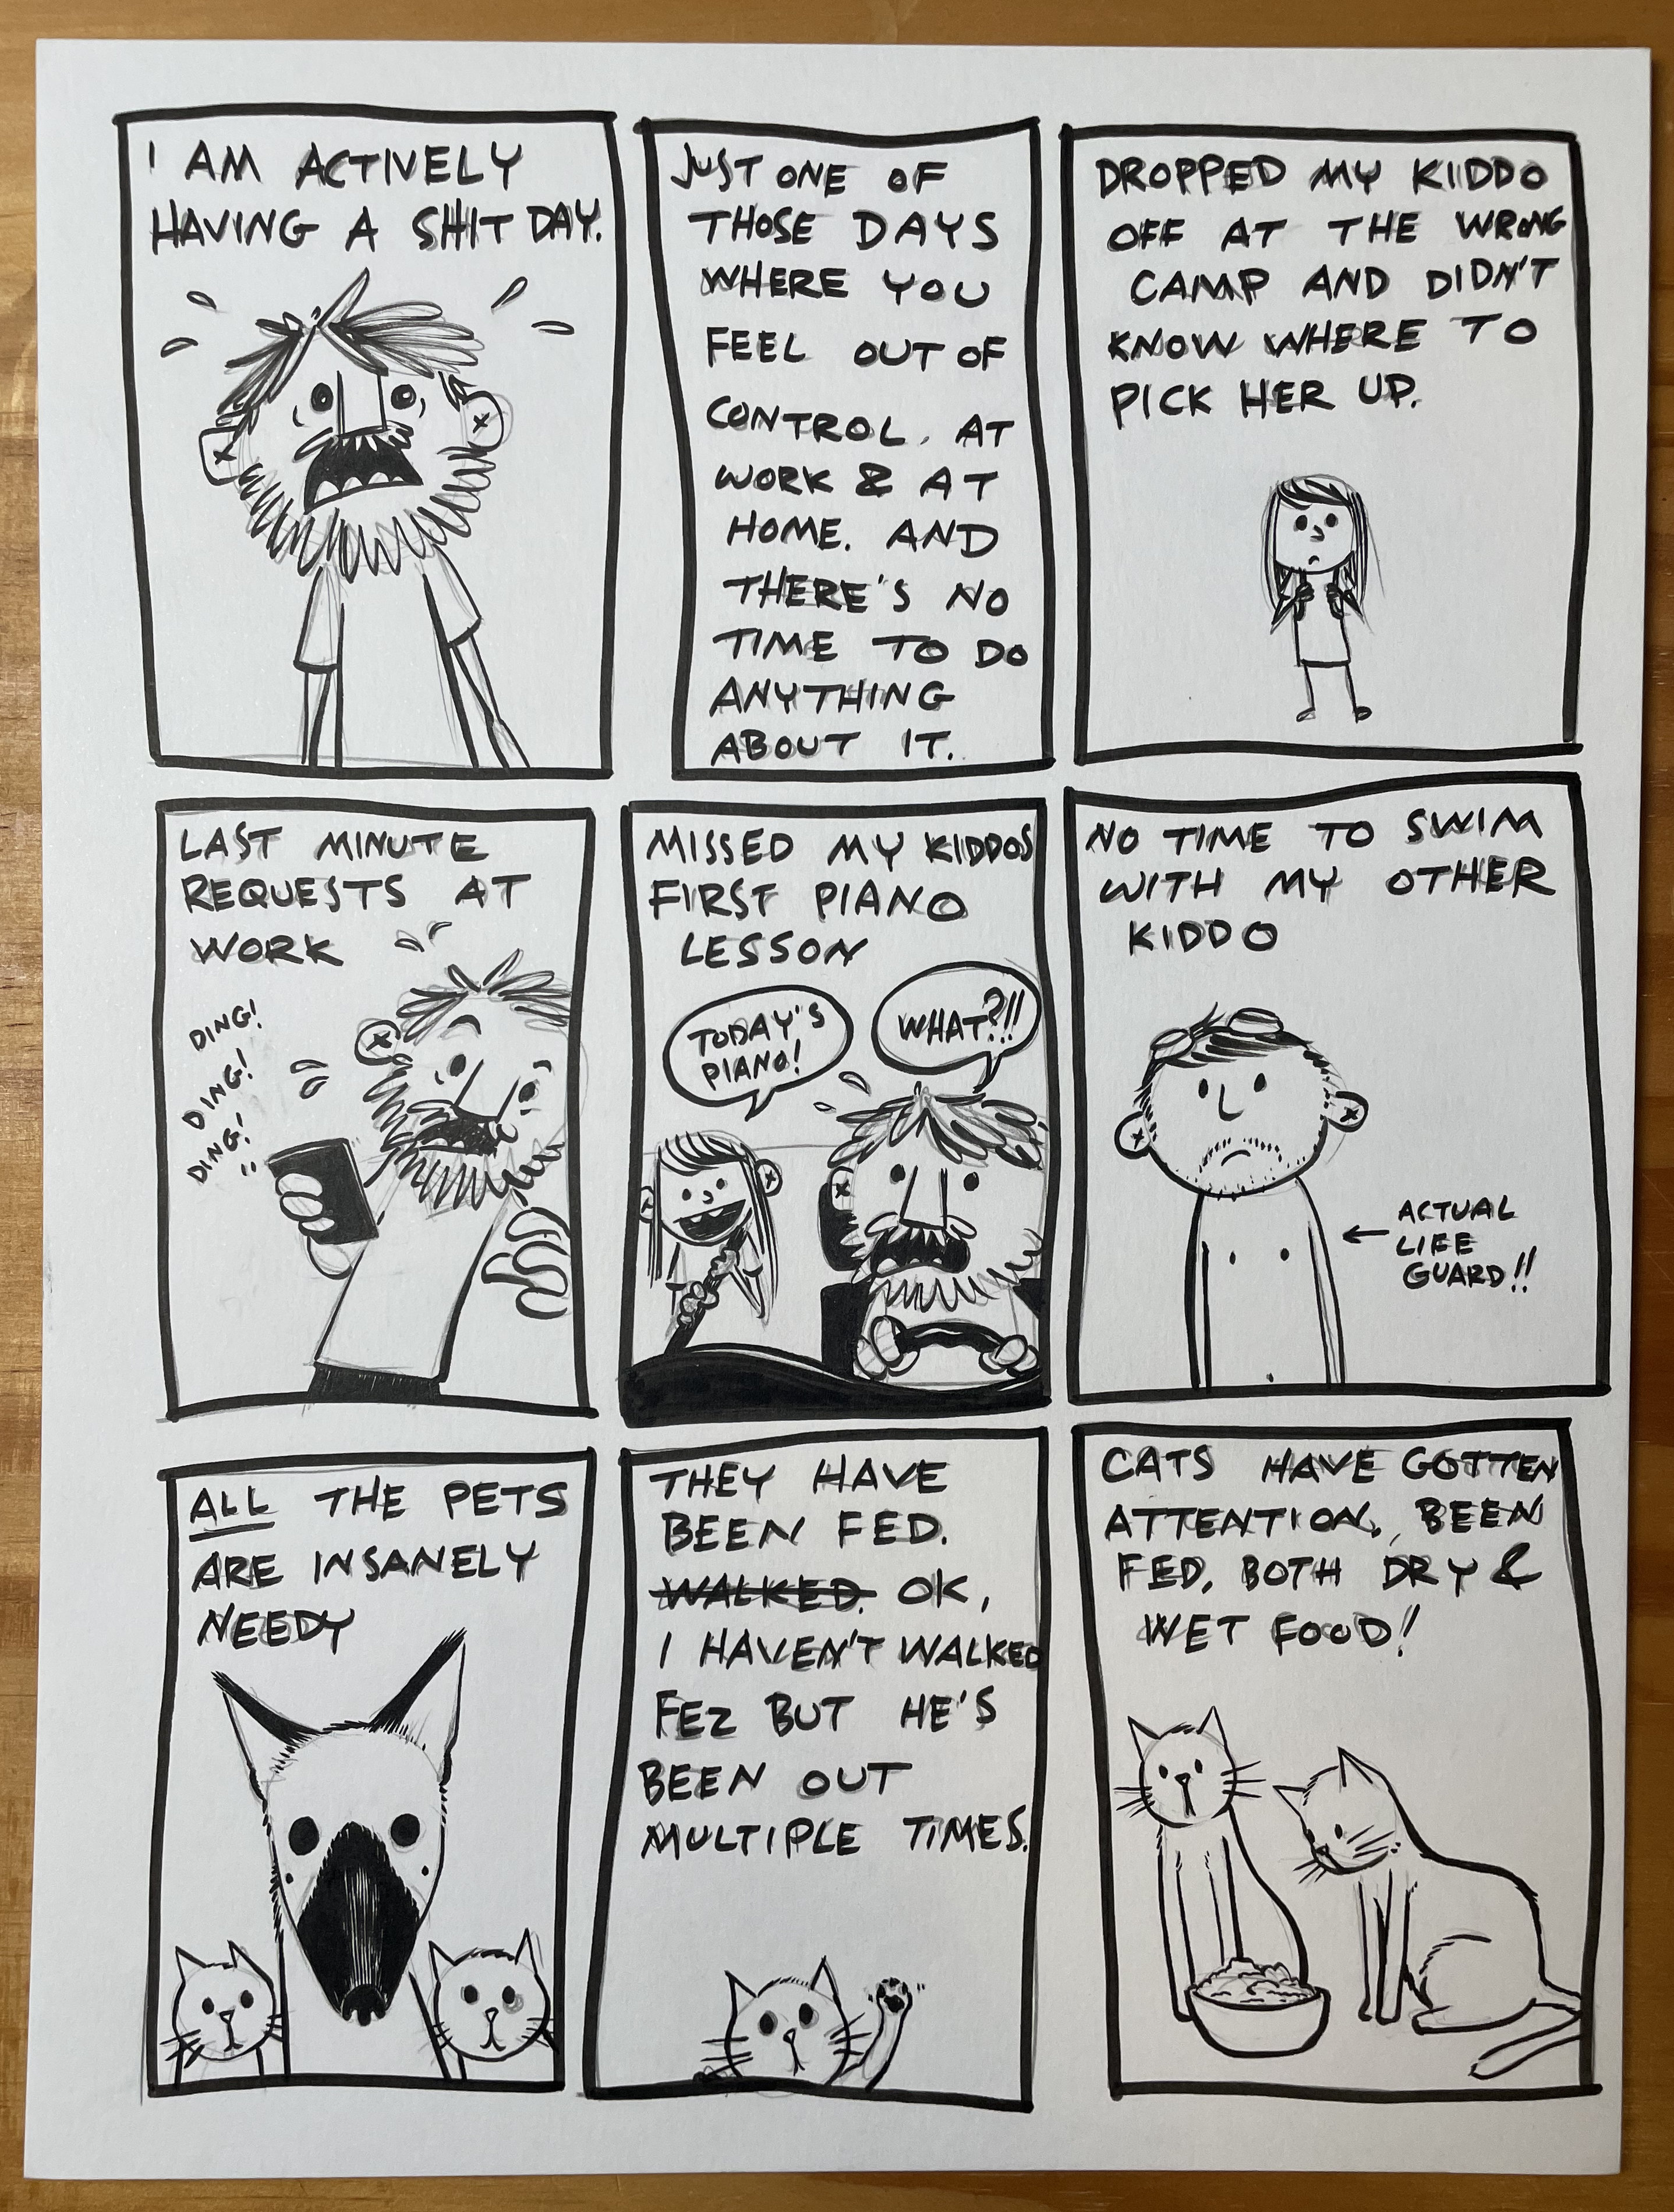 I AM ACTIVELY
HAVING A SHIT DAY.
JUST ONE OF
THOSE DAYS
WHERE YOU
FEEL OUT OF
CONTROL. AT
WORK & AT
HOME. AND
THERE'S NO
TIME TO DO
ANYTHING
ABOUT IT.
DROPPED MY KIDDO
OFF AT THE WRONG
CAMP AND DIDN'T
KNOW WHERE TO
PICK HER UP.
LAST MINUTE
REQUESTS AT
WORK
DING!
DING!
DING!
MISSED MY KIDDOS
FIRST PIANO
LESSON
TODAY'S
PIANO!
WHAT?!!
NO TIME TO SWIM
WITH MY OTHER
KIDDO
← ACTUAL
LIFE
GUARD!!
ALL THE PETS
ARE INSANELY
NEEDY
THEY HAVE
BEEN FED.
WALKED. OK,
I HAVEN'T WALKED
FEZ BUT HE'S
BEEN OUT
MULTIPLE TIMES.
CATS HAVE GOTTEN
ATTENTION, BEEN
FED, BOTH DRY &
WET FOOD!